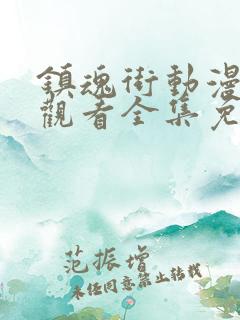 鎮魂街動漫
觀看全集免
范振增
未經同意禁止轉載